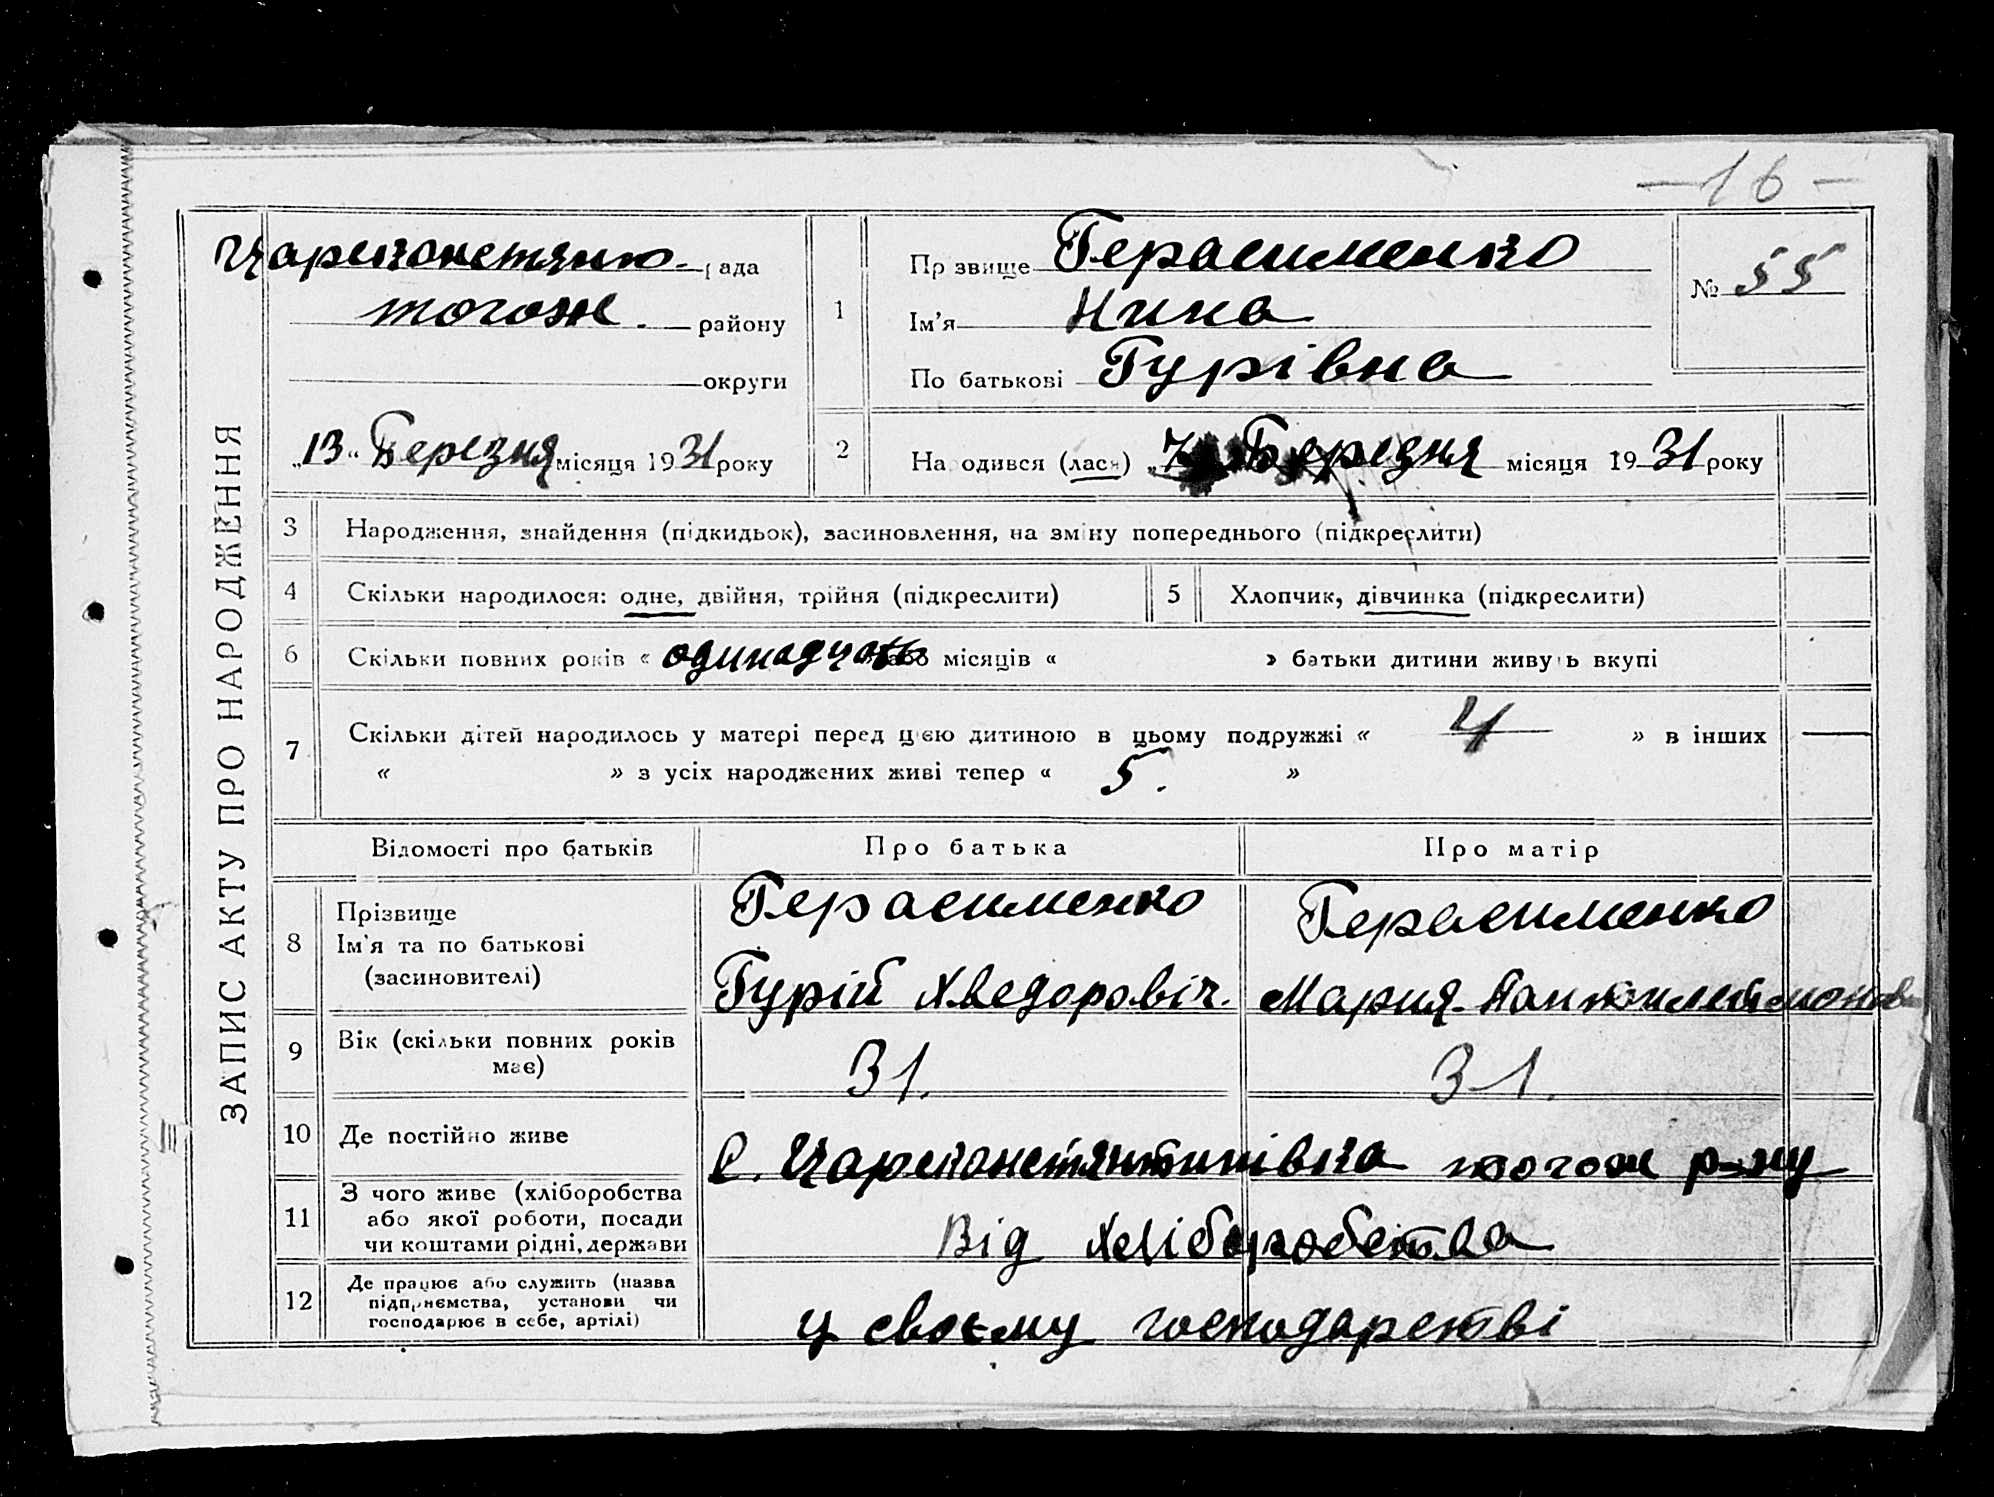 —16—
ЗАПИС АКТУ ПРО НАРОДЖЕННЯ
Царекон рада
тогож. району
округи
„13“ Березня місяця 1931 року
1
Прізвище Герасименко
Ім'я Нина
По батькові Гурівна
№ 55
2
Народився (лася) „7 Березня місяця 1931 року
3 Народження, знайдення (підкидьок), засиновлення, на зміну попереднього (підкреслити)
4 Скільки народилося: одне, двійня, трійня (підкреслити)
5 Хлопчик, дівчинка (підкреслити)
6 Скільки повних років « одинадцать або місяців « » батьки дитини живуть вкупі
7 Скільки дітей народилось у матері перед цією дитиною в цьому подружжі « 4 » в інших —
« » з усіх народжених живі тепер « 5. »
Відомості про батьків Про батька Про матір
8 Прізвище Герасименко Герасименко
Ім'я та по батькові
(засиновителі) Гурій Хведоровіч. Мария
9 Вік (скільки повних років
має) 31. 31.
10 Де постійно живе С. Цареконстянтинівка тогож р-ну
11 З чого живе (хліборобства
або якої роботи, посади
чи коштами рідні, держави Від хліборобства
12 Де працює або служить (назва
підприємства, установи чи
господарює в себе, артілі) у своєму господарстві